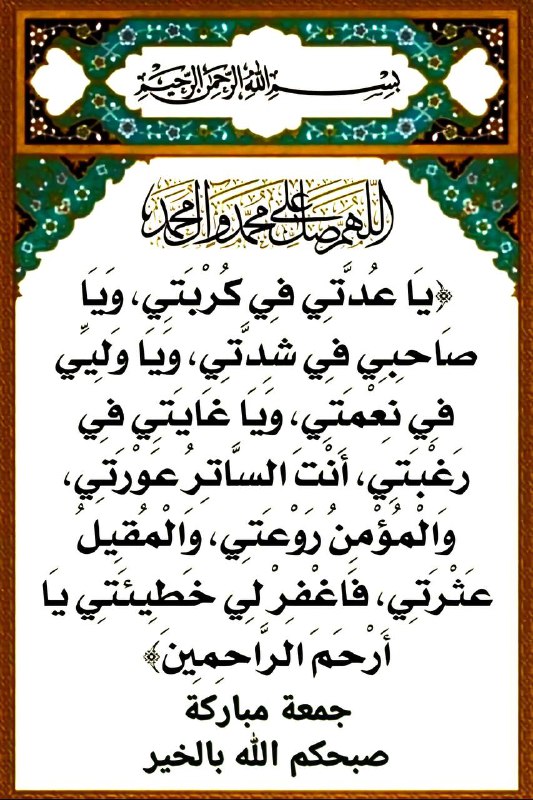 بِسْمِ اللهِ الرَّحْمٰنِ الرَّحِيْمِ
اللَّهُمَّ صَلِّ عَلَى مُحَمَّدٍ وَآلِ مُحَمَّدٍ
﴿يَا عُدَّتِي فِي كُرْبَتِي، وَيَا
صَاحِبِي فِي شِدَّتِي، وَيَا وَلِيِّي
فِي نِعْمَتِي، وَيَا غَايَتِي فِي
رَغْبَتِي، أَنْتَ السَّاتِرُ عَوْرَتِي،
وَالْمُؤْمِنُ رَوْعَتِي، وَالْمُقِيلُ
عَثْرَتِي، فَاغْفِرْ لِي خَطِيئَتِي يَا
أَرْحَمَ الرَّاحِمِينَ﴾
جمعة مباركة
صبحكم الله بالخير